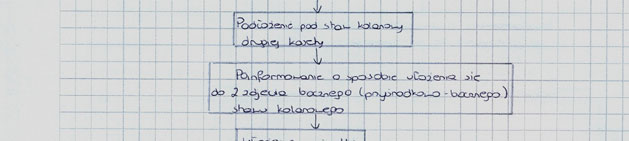 Podłożenie pod staw kolanowy
drugiej kasety
Poinformowanie o sposobie ułożenia się
do 2 zdjęcia bocznego (przyśrodkowo-bocznego)
stawu kolanowego